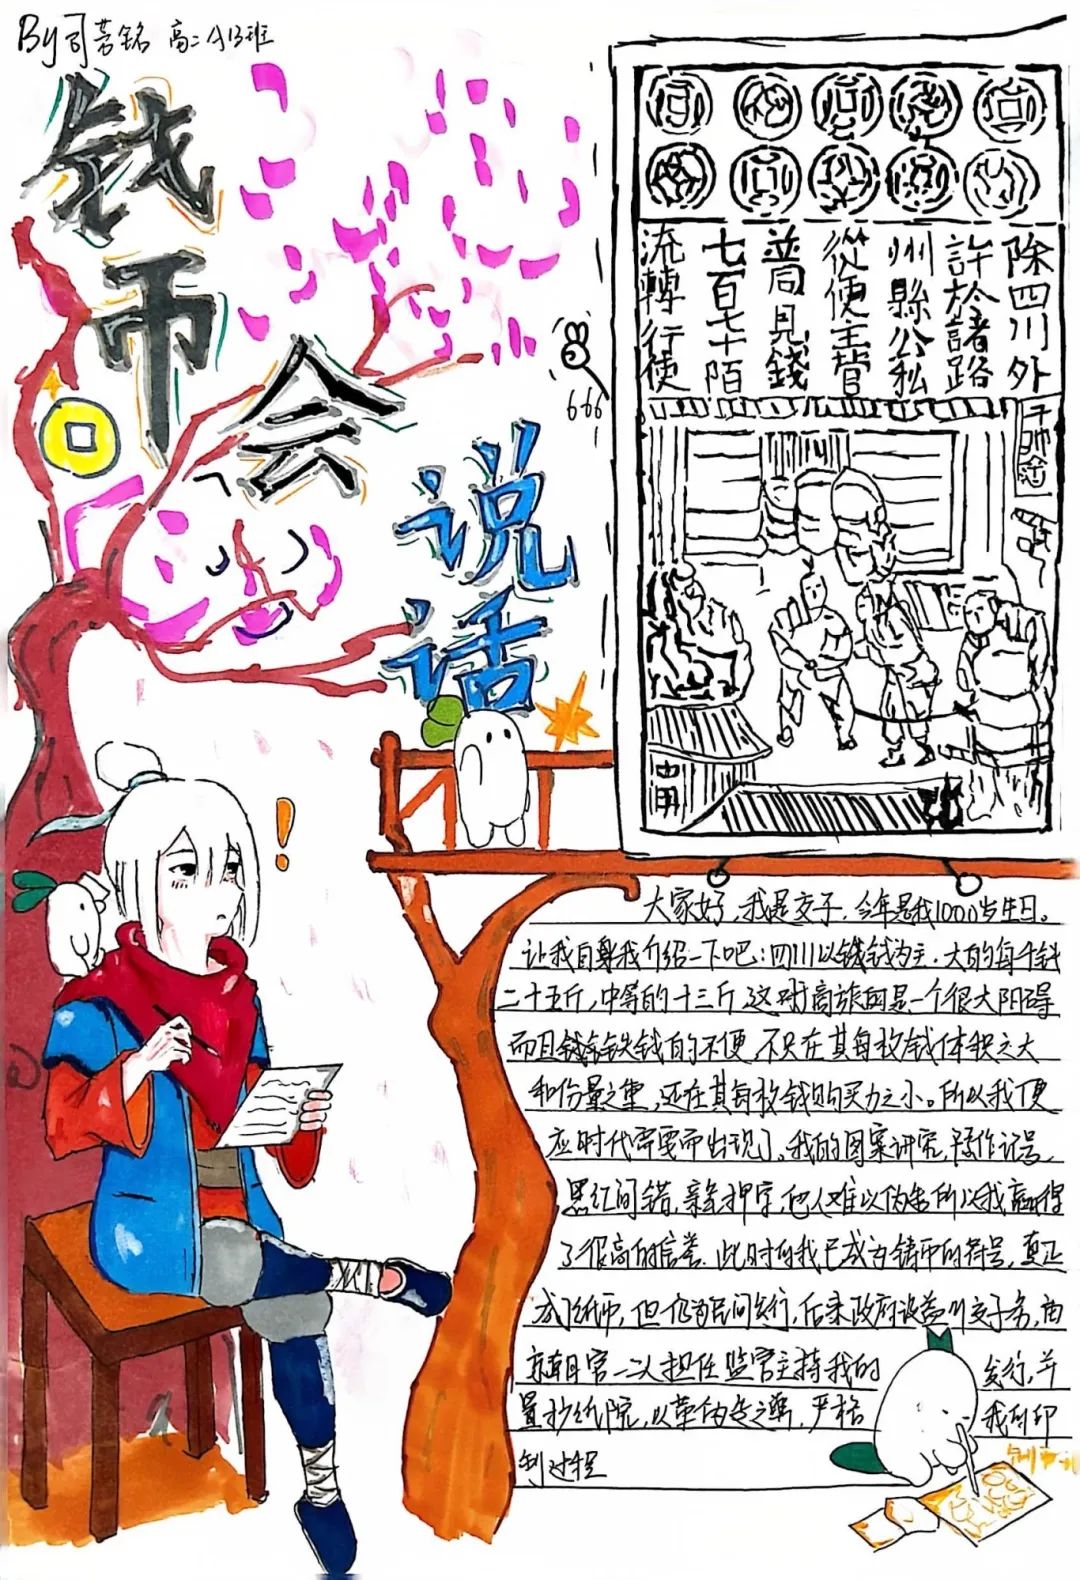 By司芳铭 高二AB班
钱币会说话
除四川外
許於諸路
州縣公私
從便主管
普同見錢
七百七十陌
流轉行使
666
大家好,我是交子,今年是我1000岁生日。
让我自身我介绍一下吧:四川以钱钱为主.大的每千钱
二十五斤,中等的十三斤,这对商旅间是一个很大阻碍
而且铁钱的不便,不只在其每枚钱体积之大
和份量之重,还在其每枚钱购买力之小。所以我便
应时代需要而出现了。我的图案讲究,隐作记号、
黑红间错,亲笔押字,他人难以伪造所以我赢得
了很高的信誉.此时的我已成为铸币的符号,真正
成了纸币,但仍为民间发行,后来政府设益州交子务,由
京朝官一二人担任监官主持我的发行,并
置抄纸院,以革伪造之弊,严格我的印
制过程